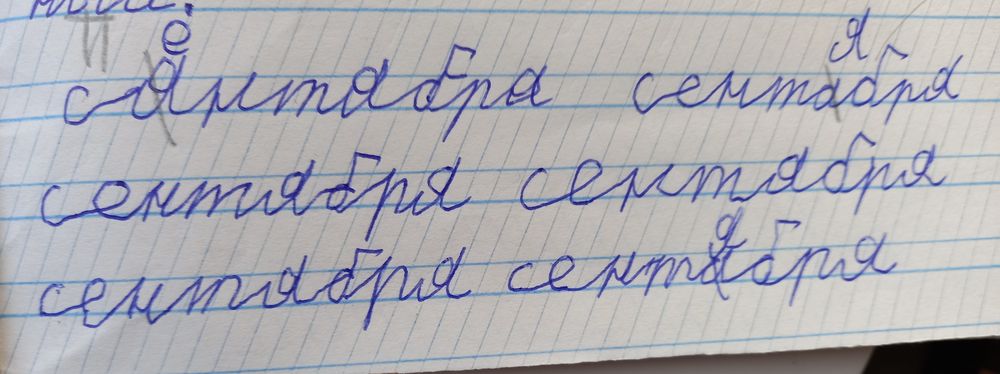 П
сентября сентября
сентября сентября
сентября сентября